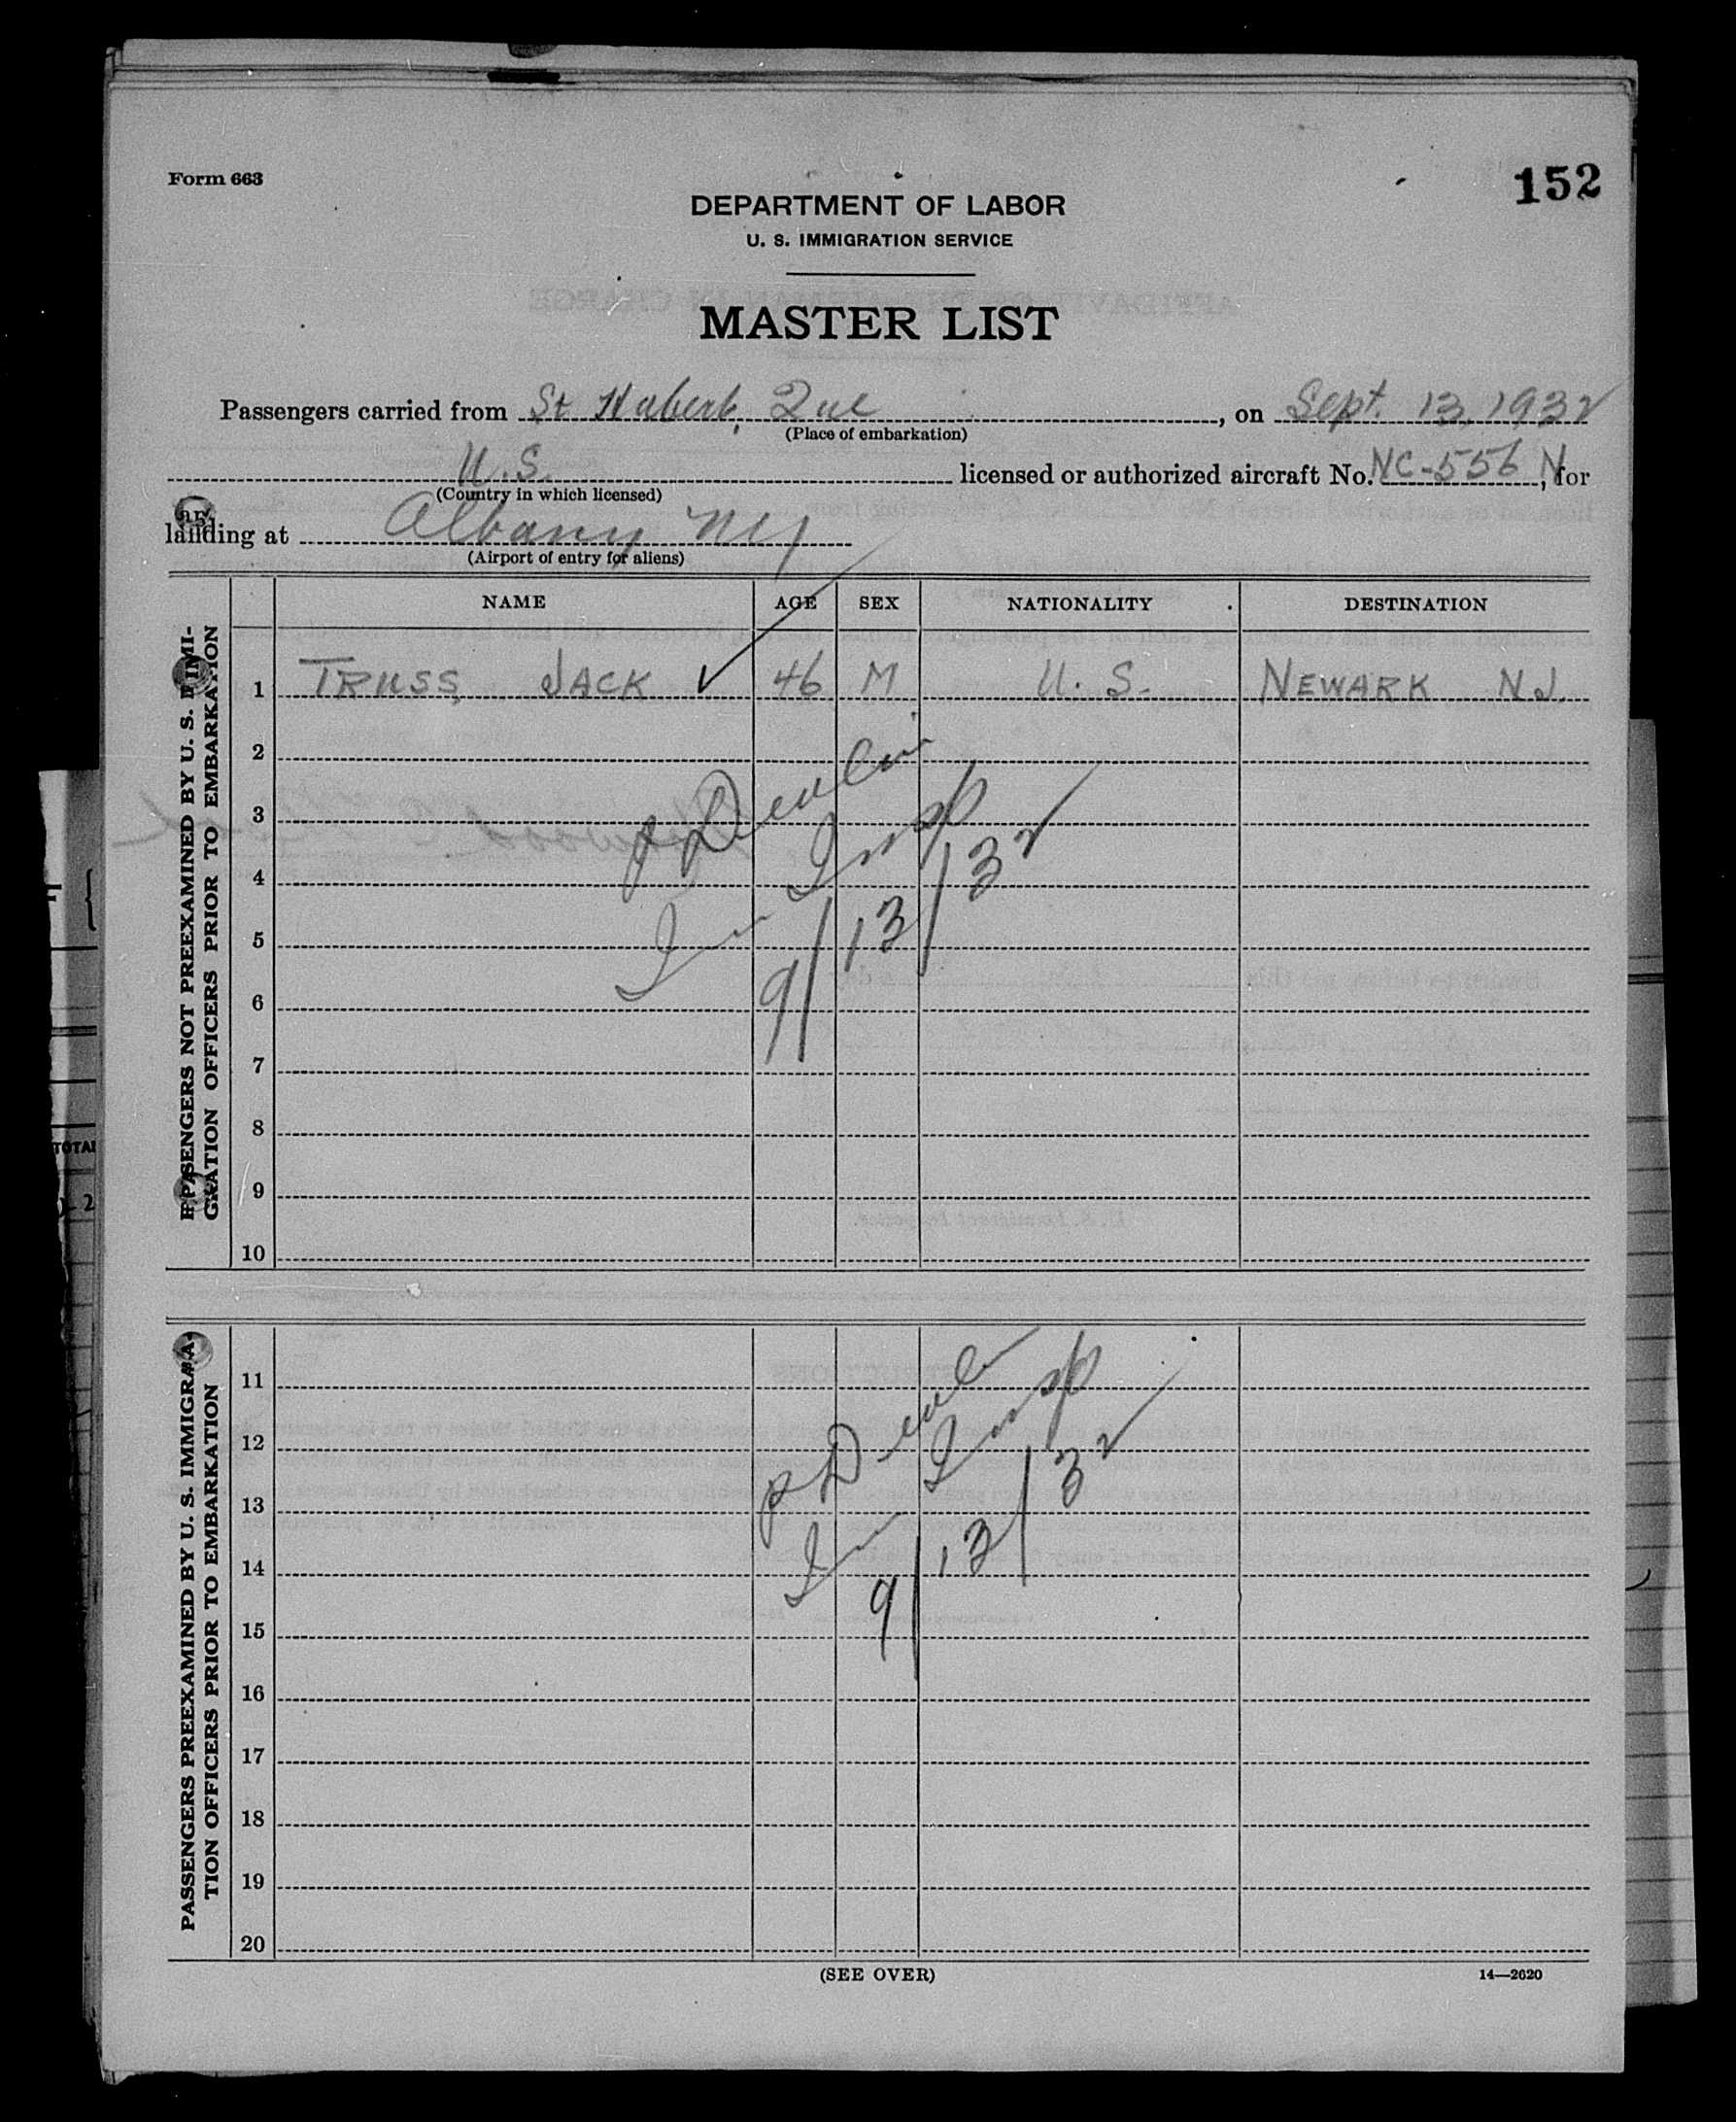 Form 663
152
DEPARTMENT OF LABOR
U. S. IMMIGRATION SERVICE
MASTER LIST
Passengers carried from St Hubert, Que, on Sept. 13, 1932
(Place of embarkation)
U.S. licensed or authorized aircraft No. NC-556 N, for
(Country in which licensed)
landing at Albany NY
(Airport of entry for aliens)
PASSENGERS NOT PREEXAMINED BY U. S. IMMI-
GRATION OFFICERS PRIOR TO EMBARKATION
NAME AGE SEX NATIONALITY DESTINATION
1 TRUSS, JACK ✓ 46 M U.S. NEWARK NJ.
2
3
4
5
6
7
8
9
10
P Devlin
Imm Insp
9/13/32
PASSENGERS PREEXAMINED BY U. S. IMMIGRA-
TION OFFICERS PRIOR TO EMBARKATION
11
12
13
14
15
16
17
18
19
20
P Devlin
Imm Insp
9/13/32
(SEE OVER)
14—2020
TOTAL